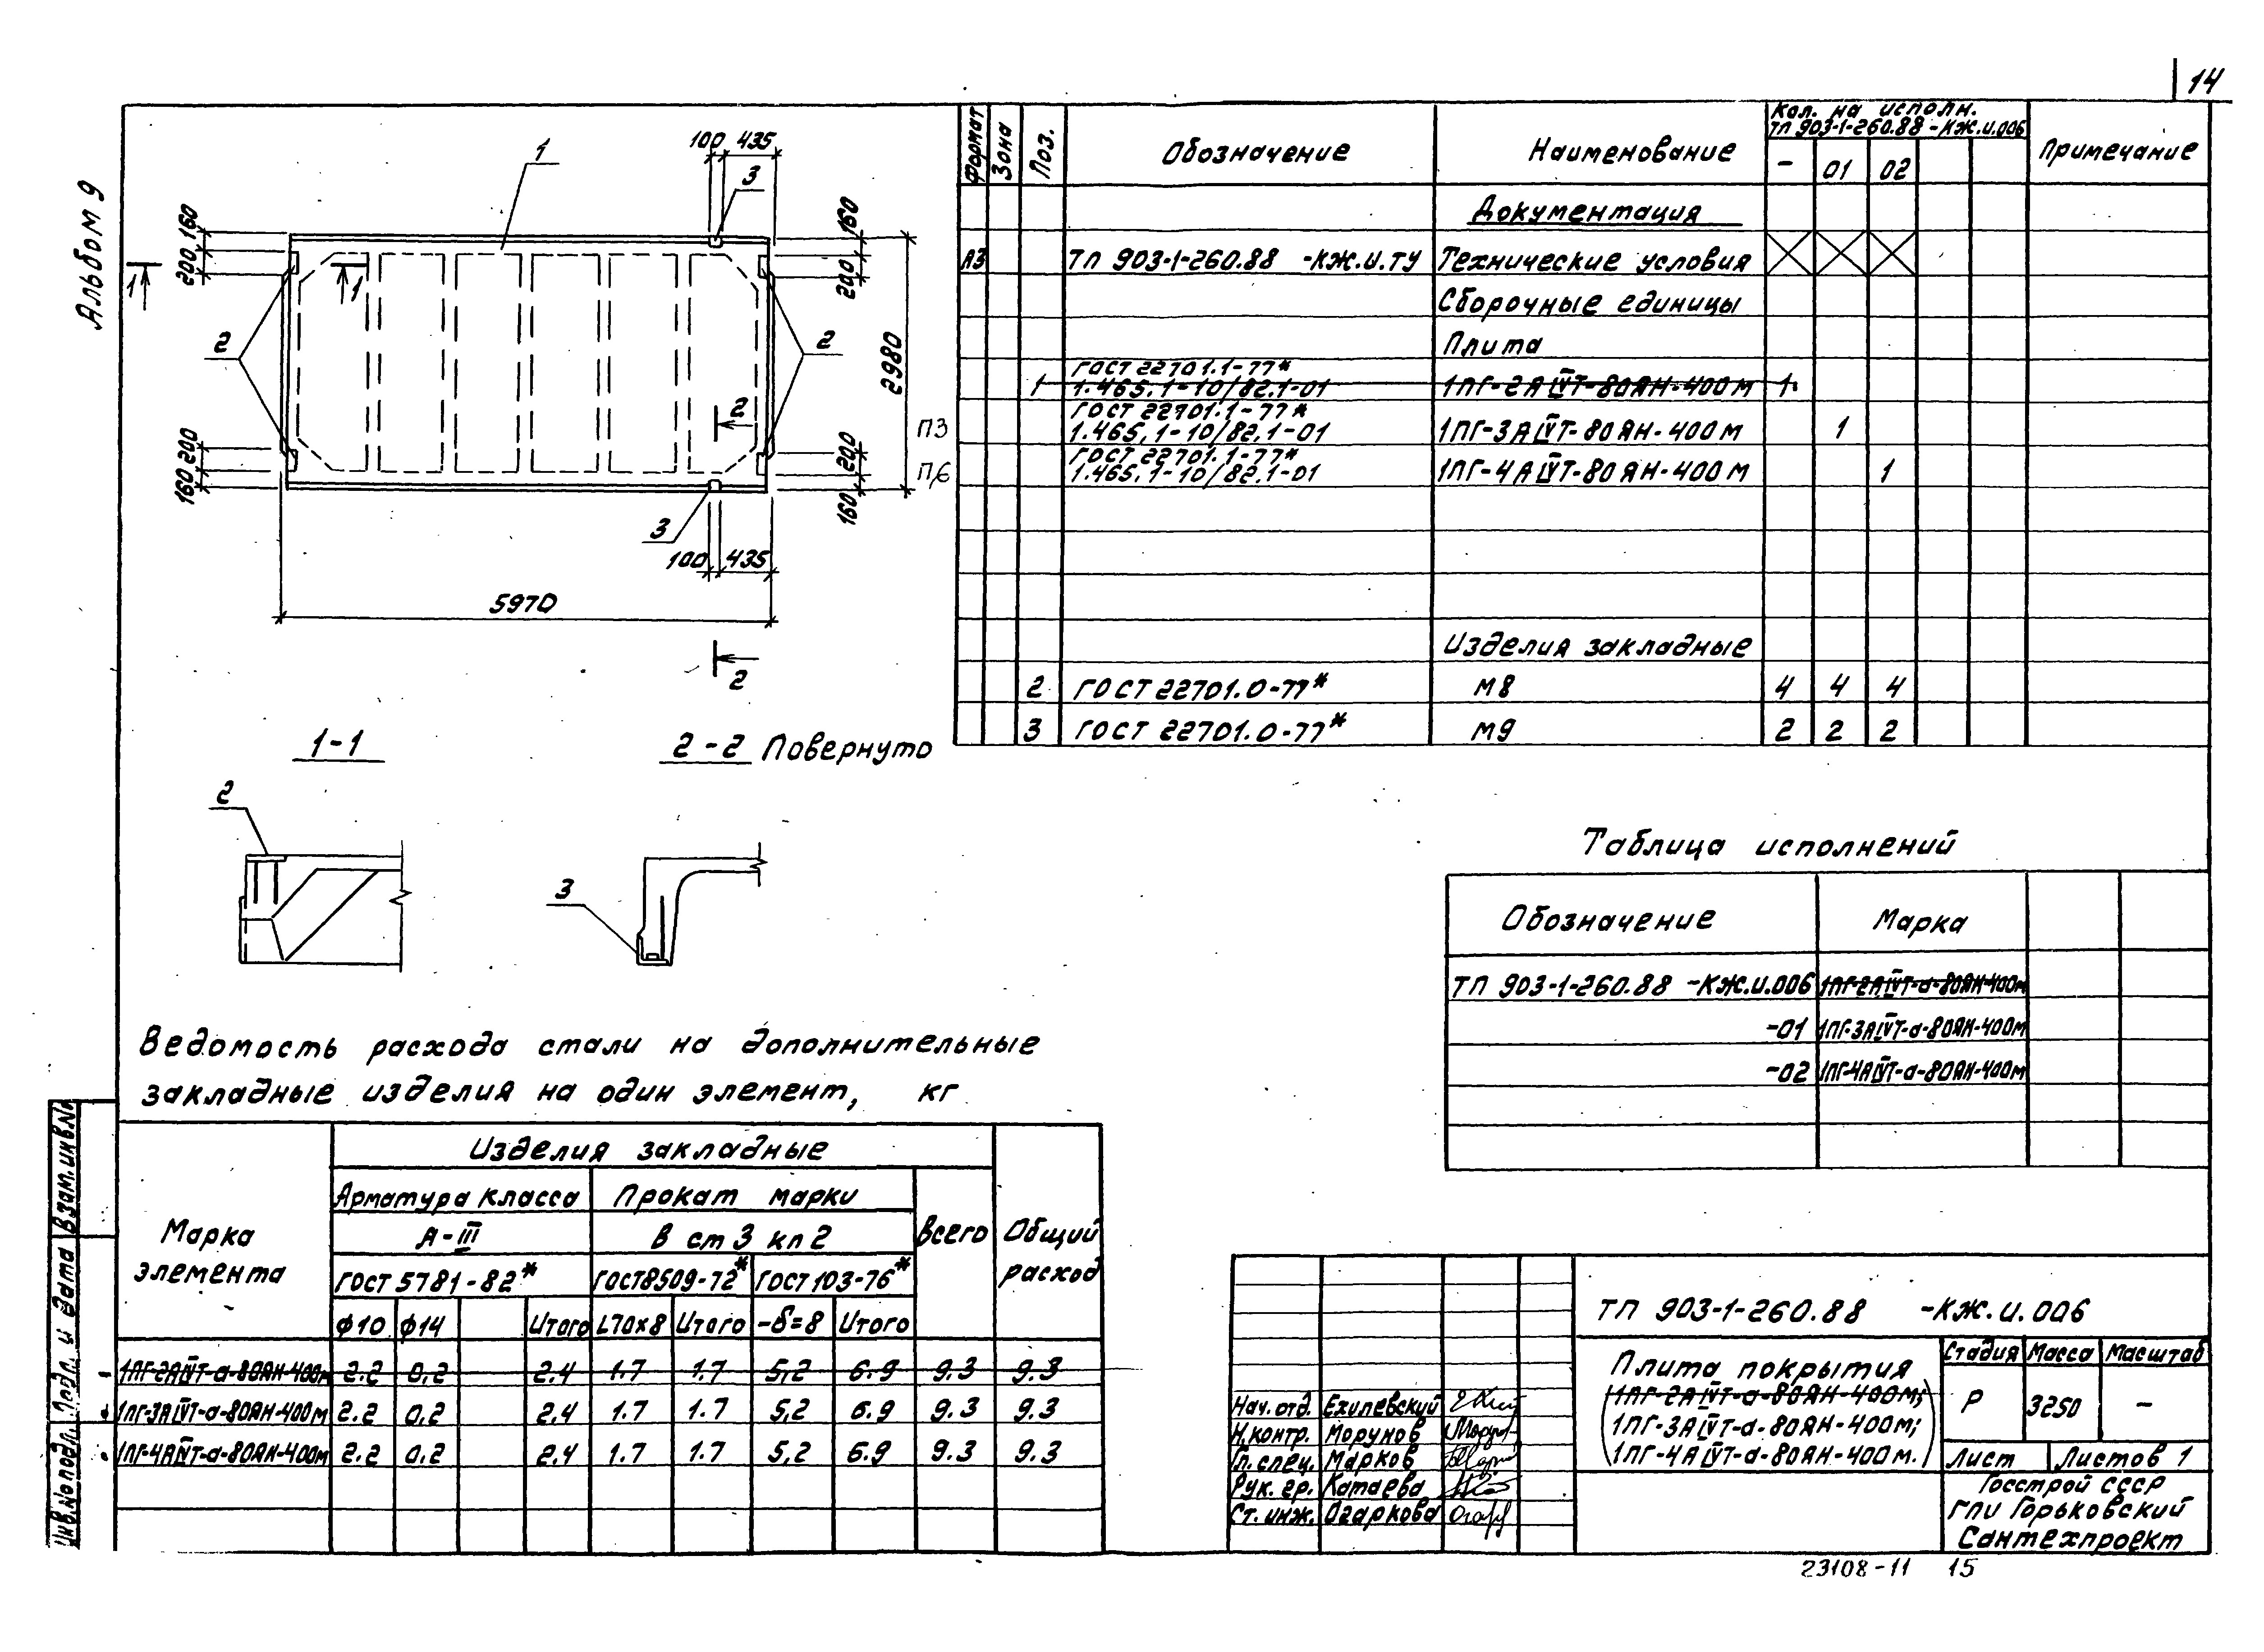 14
Альбом 9
1
100 435
3
160
200
160
200
1
1
2
2
2980
2
200
160
200
160
3
100 435
5970
2
1-1
2-2 Повернуто
2
3
Формат
Зона
Поз.
Обозначение
Наименование
Кол. на исполн.
ТП 903-1-260.88 -КЖ.И.006
- 01 02
Примечание
Документация
А3 ТП 903-1-260.88 -КЖ.И.ТУ Технические условия
Сборочные единицы
Плита
ГОСТ 22701.1-77*
1 1.465.1-10/82.1-01 1ПГ-2АIVТ-80ЯН-400М 1
ГОСТ 22701.1-77*
П3 1.465.1-10/82.1-01 1ПГ-3АIVТ-80ЯН-400М 1
ГОСТ 22701.1-77*
П6 1.465.1-10/82.1-01 1ПГ-4АIVТ-80ЯН-400М 1
Изделия закладные
2 ГОСТ 22701.0-77* М8 4 4 4
3 ГОСТ 22701.0-77* М9 2 2 2
Таблица исполнений
Обозначение Марка
ТП 903-1-260.88 -КЖ.И.006 1ПГ-2АIVТ-а-80ЯН-400М
-01 1ПГ-3АIVТ-а-80ЯН-400М
-02 1ПГ-4АIVТ-а-80ЯН-400М
Ведомость расхода стали на дополнительные
закладные изделия на один элемент, кг
Марка
элемента
Изделия закладные
Арматура класса Прокат марки
А-III В ст 3 кп 2
ГОСТ 5781-82* ГОСТ 8509-72* ГОСТ 103-76*
Всего
Общий
расход
ф10 ф14 Итого L70х8 Итого -δ=8 Итого
1ПГ-2АIVТ-а-80ЯН-400М 2.2 0,2 2.4 1.7 1.7 5,2 6.9 9.3 9.3
1ПГ-3АIVТ-а-80ЯН-400М 2.2 0,2 2.4 1.7 1.7 5,2 6.9 9.3 9.3
1ПГ-4АIVТ-а-80ЯН-400М 2.2 0,2 2.4 1.7 1.7 5,2 6.9 9.3 9.3
Взам.инв.№
Подп. и дата
Инв.№подл.
ТП 903-1-260.88 -КЖ.И.006
Плита покрытия
(1ПГ-2АIVТ-а-80ЯН-400М;
1ПГ-3АIVТ-а-80ЯН-400М;
1ПГ-4АIVТ-а-80ЯН-400М.)
Стадия Масса Масштаб
Р 3250 -
Лист Листов 1
Госстрой СССР
ГПИ Горьковский
Сантехпроект
Нач.отд. Ехилевский
Н.контр. Морунов
Гл.спец. Марков
Рук. гр. Катаева
Ст. инж. Огаркова
23108-11 15